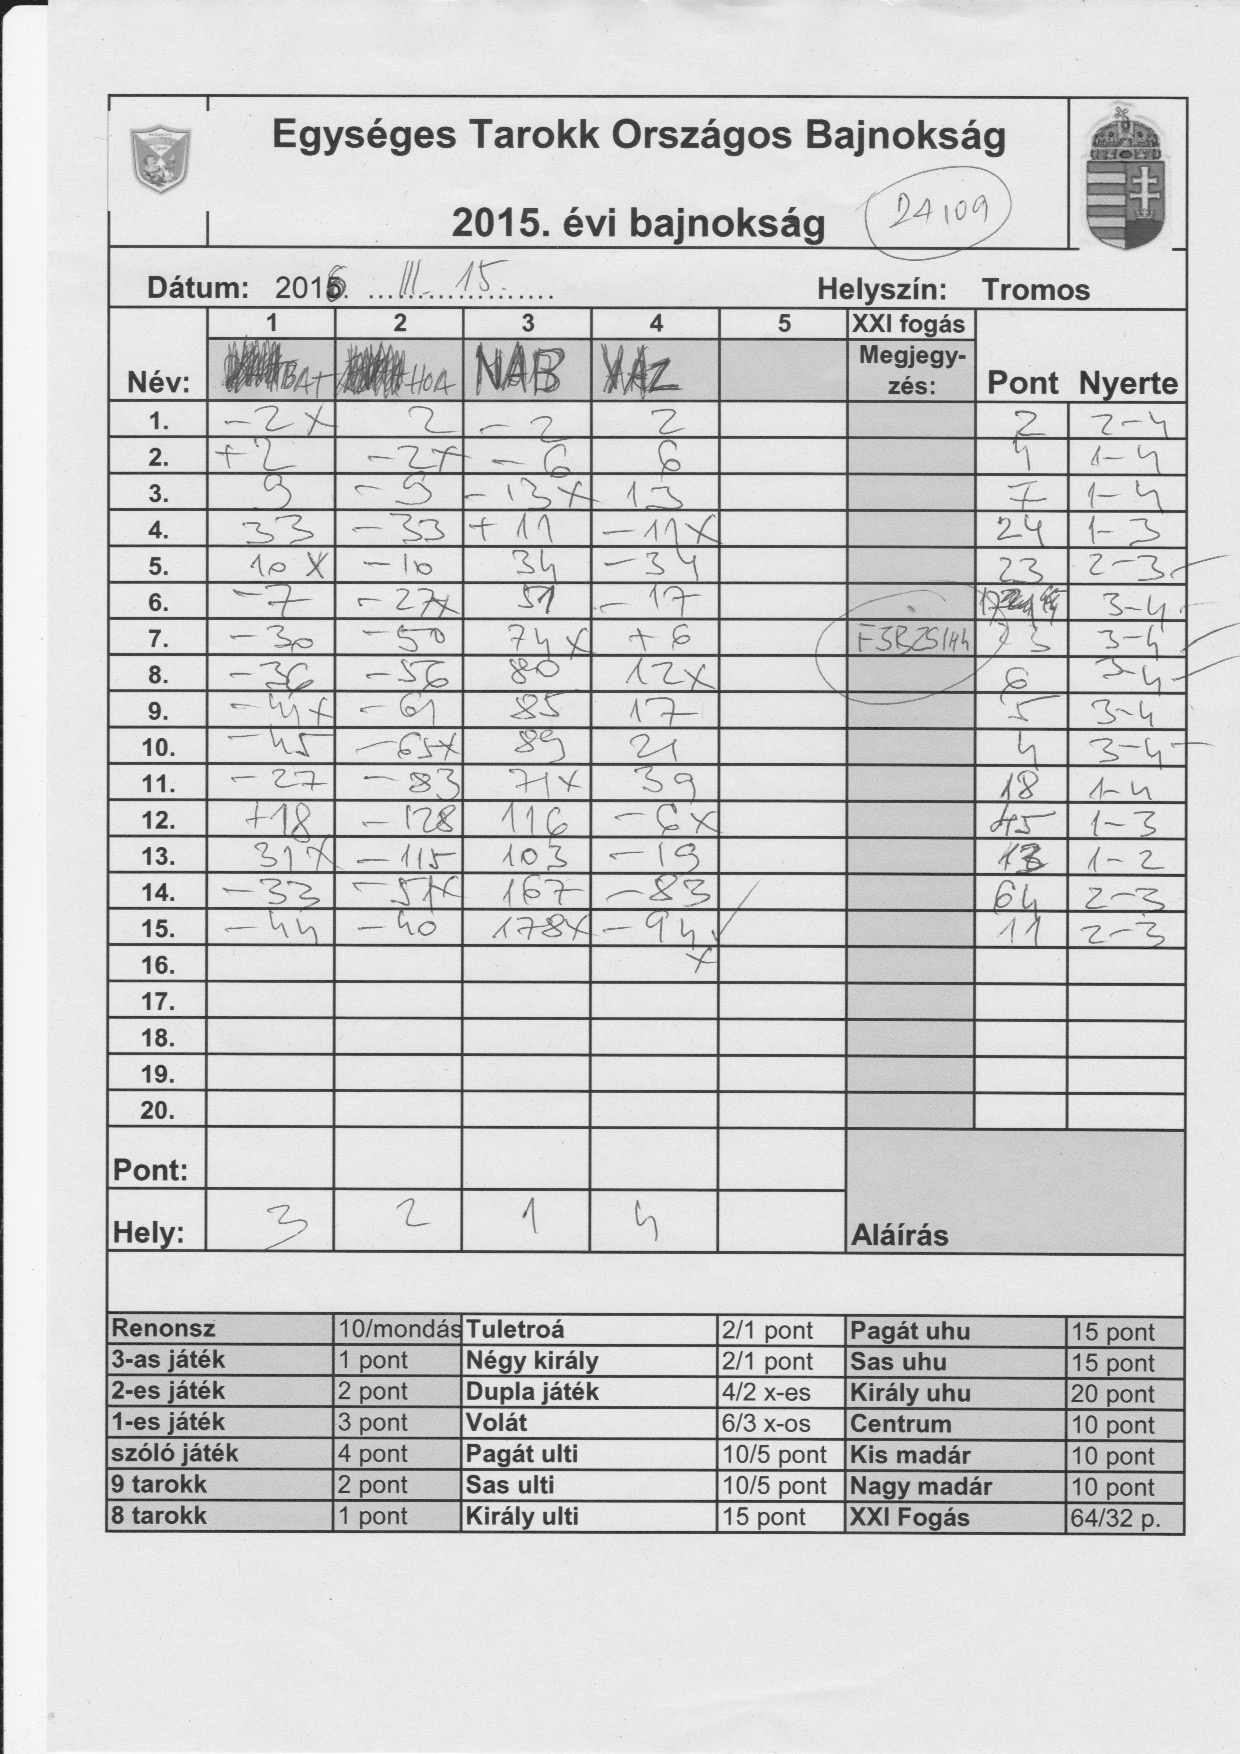 Egységes Tarokk Országos Bajnokság
2015. évi bajnokság 24109
Dátum: 2016. III. 15. Helyszín: Tromos
1 2 3 4 5 XXI fogás
Név: BAT HOA NAB YAZ Megjegy-zés: Pont Nyerte
1. -2x 2 -2 2 2 2-4
2. +2 -2x -6 6 4 1-4
3. 9 -9 -13x 13 7 1-4
4. 33 -33 +11 -11x 24 1-3
5. 10x -10 34 -34 23 2-3
6. -7 -27x 51 -17 3-4
7. -30 -50 74x +6 23 3-4
8. -36 -56 80 12x 6 3-4
9. -41x -61 85 17 5 3-4
10. -45 -65x 89 21 4 3-4
11. -27 -83 71x 39 18 1-4
12. +18 -128 116 -6x 45 1-3
13. 31x -115 103 -19 13 1-2
14. -33 -51x 167 -83 64 2-3
15. -44 -40 178x -94 11 2-3
16. x
17.
18.
19.
20.
Pont:
Hely: 3 2 1 4 Aláírás
Renonsz 10/mondás Tuletroá 2/1 pont Pagát uhu 15 pont
3-as játék 1 pont Négy király 2/1 pont Sas uhu 15 pont
2-es játék 2 pont Dupla játék 4/2 x-es Király uhu 20 pont
1-es játék 3 pont Volát 6/3 x-os Centrum 10 pont
szóló játék 4 pont Pagát ulti 10/5 pont Kis madár 10 pont
9 tarokk 2 pont Sas ulti 10/5 pont Nagy madár 10 pont
8 tarokk 1 pont Király ulti 15 pont XXI Fogás 64/32 p.